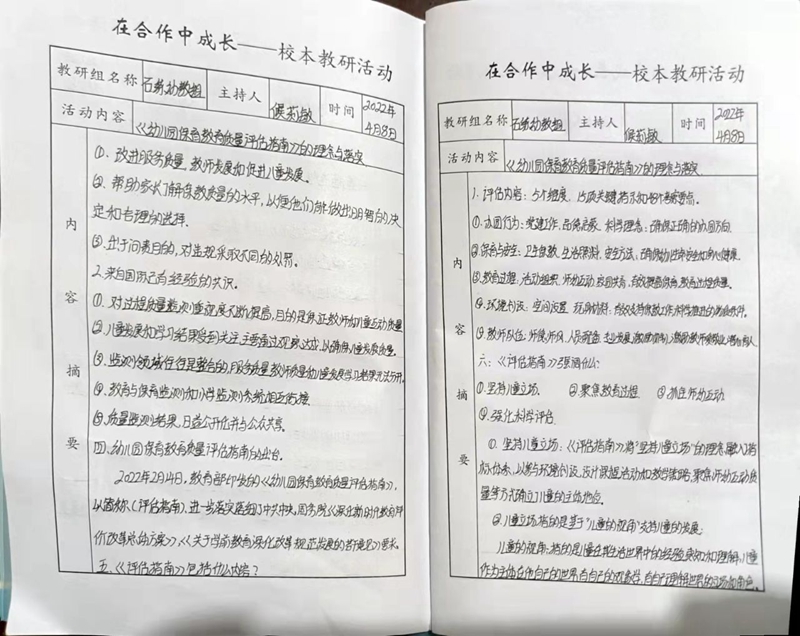 在合作中成长——校本教研活动
教研组名称 主持人 侯莉敏 时间 2022年4月8日
活动内容 《幼儿园保育教育质量评估指南》的理念与落实
内容摘要
①、改进服务质量,教师发展和促进儿童发展。
②、帮助家长了解保教质量的水平,以便他们能做出明智的决
定和合理的选择。
③、出于问责目的,对违规采取不同的处罚。
2.来自国际已有经验的共识。
①、对过程质量监测重视度不断提高,目的是保证教师和儿童互动质量
②、儿童发展和学习结果受到关注,主要通过观察达成,以确保儿童发展质量。
③、监测领域往往是整合的,服务质量教师质量和儿童发展学习结果无法分开。
④、教育与保育监测和小学监测系统相互衔接
⑤、质量监测结果,日益公开化并与公众共享。
四、幼儿园保育教育质量评估指南的出台。
2022年2月4日,教育部印发的《幼儿园保育教育质量评估指南》,
以简称《评估指南》,进一步落实医组了中共中央,国务院《深化新时代教育评
价改革总体方案》、《关于学前教育深化改革规范发展的若干意见》要求。
五、《评估指南》包括什么内容?
在合作中成长——校本教研活动
教研组名称 主持人 侯莉敏 时间 2022年4月8日
活动内容 《幼儿园保育教育质量评估指南》的理念与落实
内容摘要
1、评估内容:5个维度,15项关键指标和48个考察要点。
①、办园行为:党建工作、品德启蒙、科学理念;确保正确的办园方向
②、保育与安全:卫生保健、生活照料、安全防护;确保幼儿生命安全和身心健康。
③、教育过程:活动组织、师幼互动、家园共育;有效提高保育教育过程质量。
④、环境创设:空间设置、玩具材料;
⑤、教师队伍:师德师风、人员配备、
六:《评估指南》强调什么:
①、坚持儿童立场 ②、聚焦教育过程 ③、抓住师幼互动
④、强化科学评估
①、坚持儿童立场:《评估指南》将"坚持儿童立场"的理念融入指
标体系,以参与环境创设、设计课程活动和教学策略,聚焦师幼互动质
量等方式确立儿童的主体地位。
②、儿童立场指的是基于"儿童的视角"支持儿童的发展;
儿童的视角:指的是儿童在其生活世界中的经验感知和理解,儿童
作为主体在他自己的世界有自己的观察